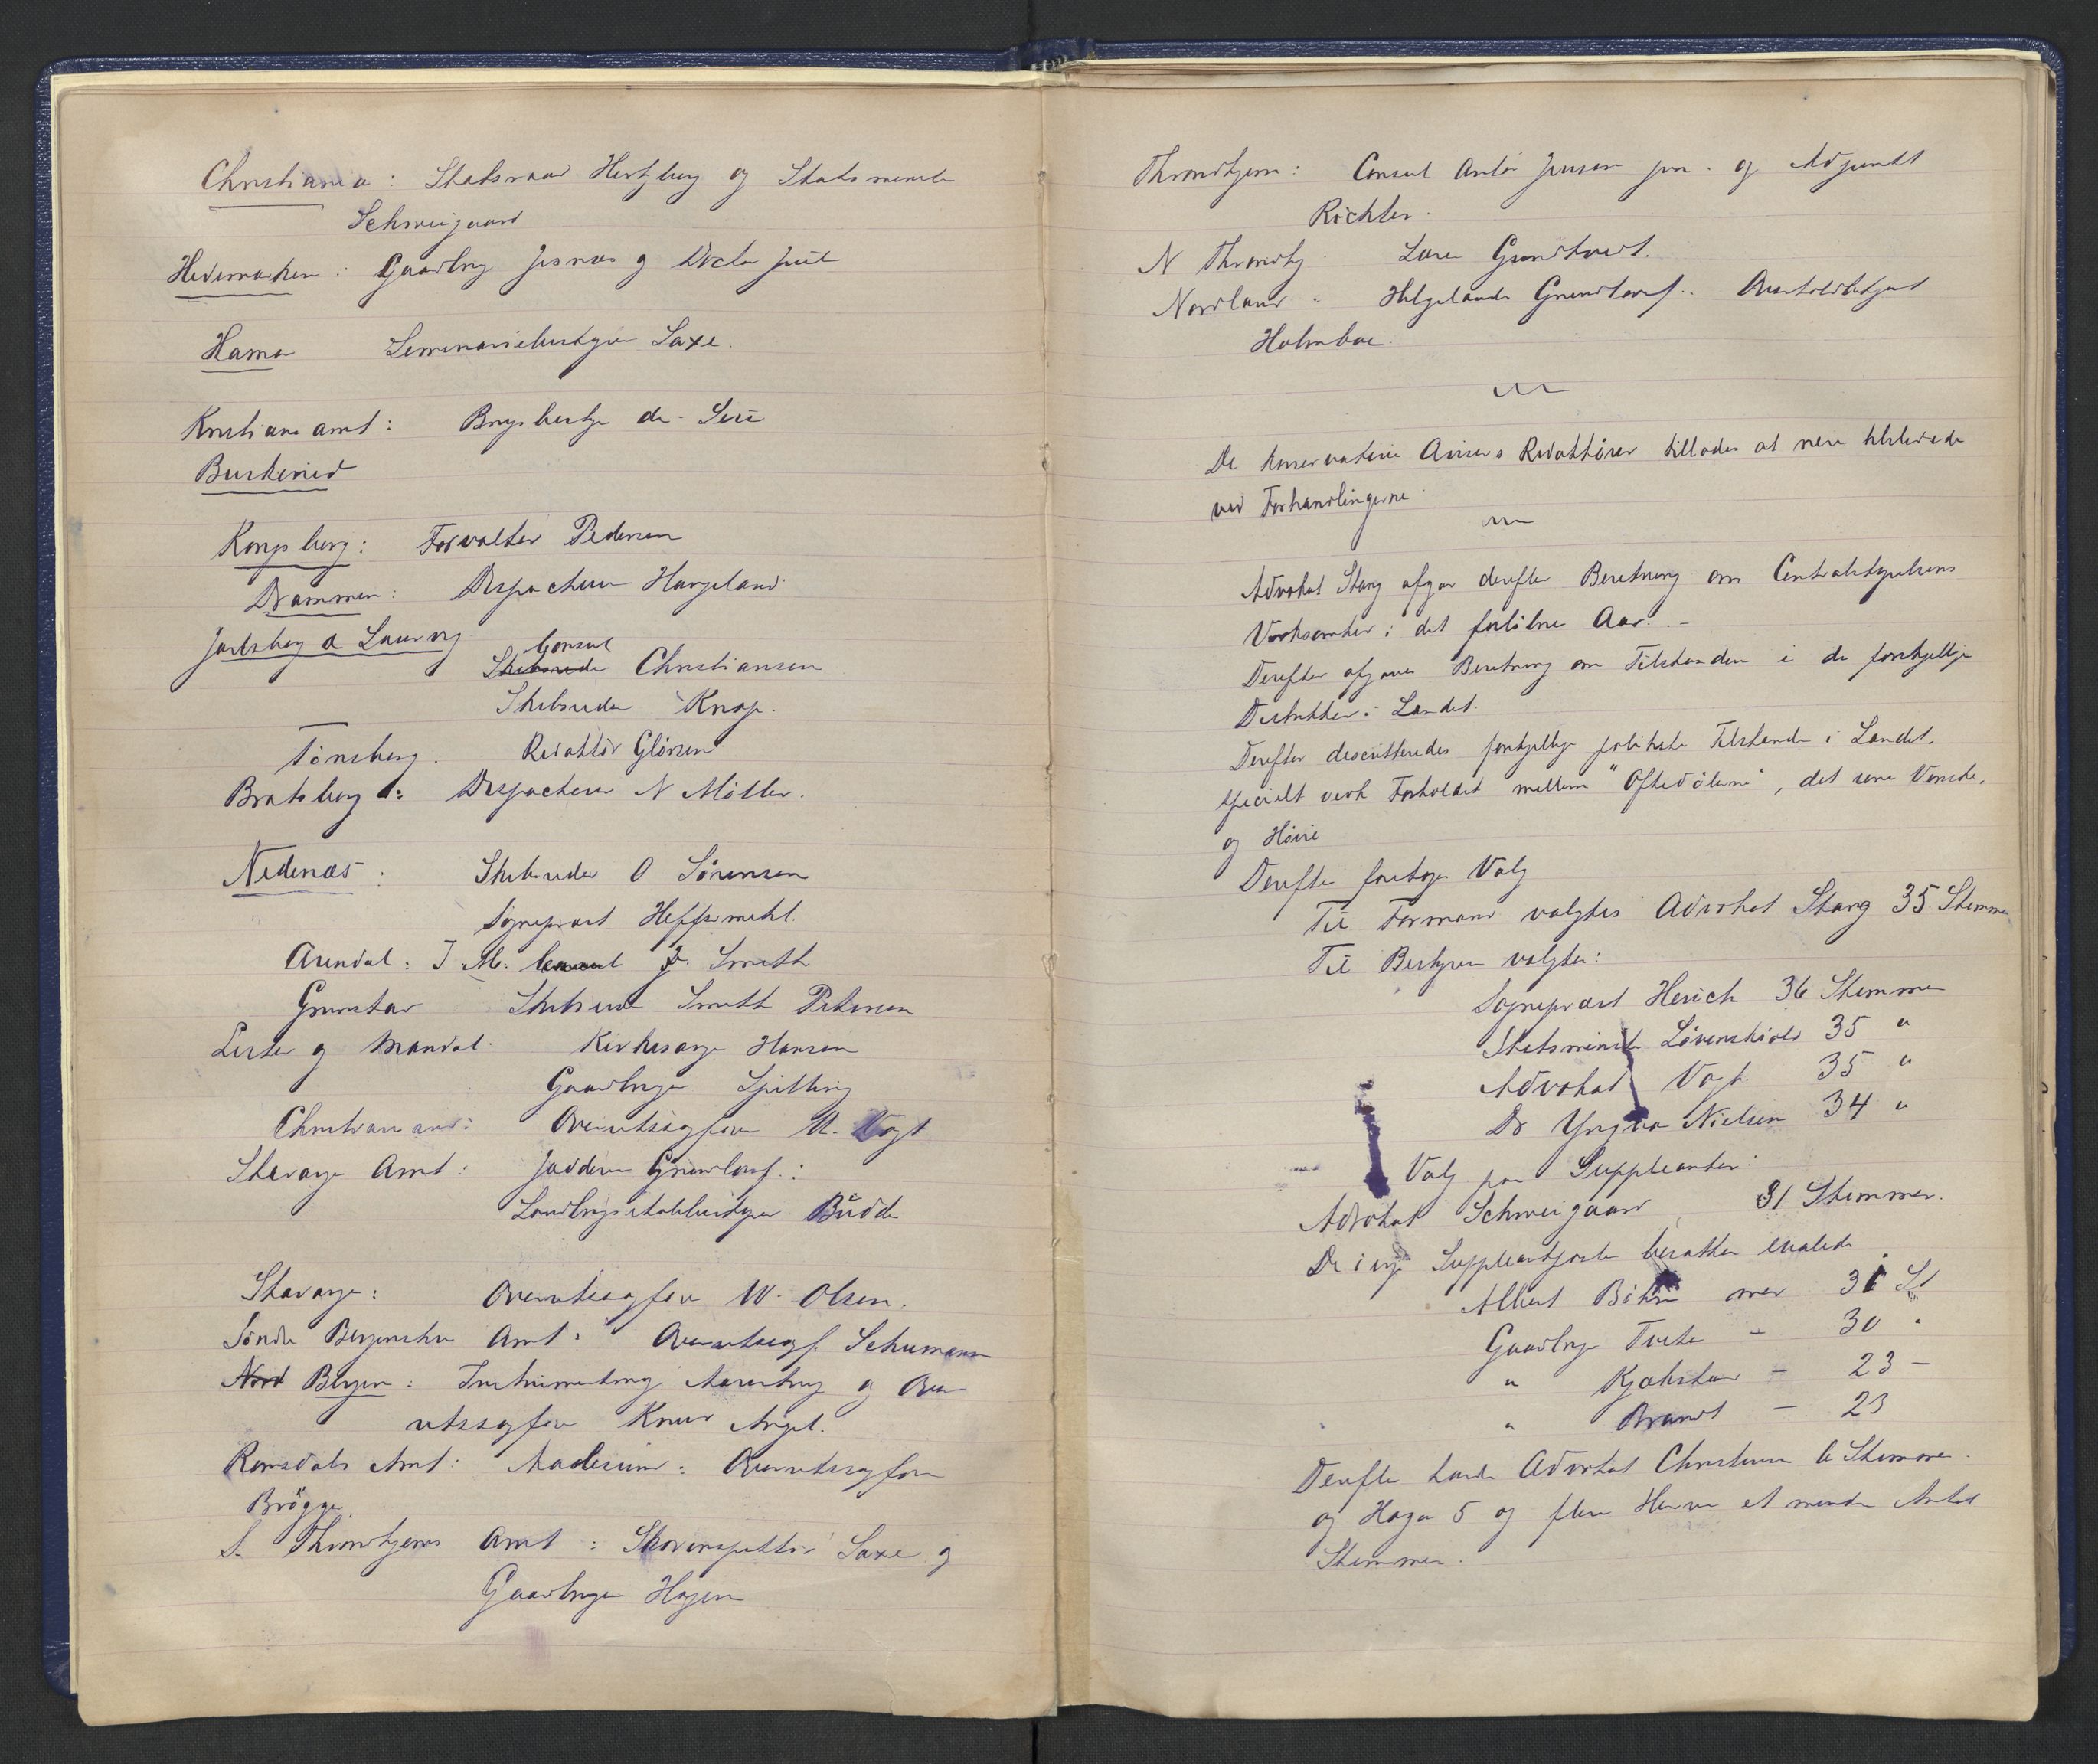 Christiania: Statsraad Hertzberg og Statsminister
Schweigaard
Hedemarken: Gaardbrug Jesnæs og Doctor Juel
Hamar Seminariebestyrer Saxe.
Kristians amt: Brugsbestyr de Seue
Buskerud
Kongsberg: Forvalter Pedersen
Drammen: Dispacheur Haugeland
Jarlsberg & Laurvig
Consul
Skibsreder Christiansen
Skibsreder Knap.
Tönsberg. Redaktör Glörsen
Bratsberg: Dispacheur N Möller.
Nedenæs: Skibsreder O Sörensen
Sogneprest Heffermehl.
Arendal: I. M. Consul J. Smith
Grimstad Skibsred Smith Petersen
Lister og Mandal. Kirkesanger Hansen
Gaardbruger Spilling
Christiansand: Overretssagfører M. Vogt
Stavanger Amt: Jæderen Grundlovsf.:
Landbrugsskolebestyrer Budde
Stavanger: Overretssagfører W. Olsen.
Söndre Bergenshus Amt: Overretssagf. Schumann
Nord Bergen: Instrumentmag Aarestrup og Over
retssagfører Knud Angel.
Romsdals Amt: Aalesund: Overretssagfører
Brögger
S. Throndhjems Amt: Skovinspektör Saxe og
Gaardbruger Hagen
Throndhjem: Consul Anton Jenssen jun. og Adjunkt
Richter.
N Throndhj. Lars Grundtvedt.
Nordland: Helgelands Grundlovsf.: Amtsoldbetjent
Holmboe.
De konservative Avisers Redaktörer tillades at være tilstede
ved Forhandlingerne.
Advokat Stang afgav derefter Beretning om Centralstyrelsens
Virksomhed i det forlöbne Aar. -
Derefter afgaves Beretning om Tilstanden i de forskjellige
Distrikter i Landet.
Derefter discutteredes forskjellige politiske Tilstande i Landet,
specielt vedk Forholdet mellem "Oftedölerne", det rene Venstre,
og Höire
Derefter foretoges Valg
Til Formand valgtes Advokat Stang 35 Stemmer
Til Bestyrere valgtes:
Sogneprest Heuch 36 Stemmer
Statsminister Lövenskiold 35 "
Advokat Vogt. 35 "
Dr Yngvar Nielsen 34 "
Valg paa Suppleanter:
Advokat Schweigaard, 31 Stemmer.
De övrige Suppleantposter besattes saaledes
Albert Böhn med 31 St
Gaardbrug Tveter - 30 "
" Kjølstad - 23 -
" Brandt - 23
Derefter havde Advokat Christensen 6 Stemmer
og Hagen 5 og flere Herrer et mindre Antal
Stemmer.